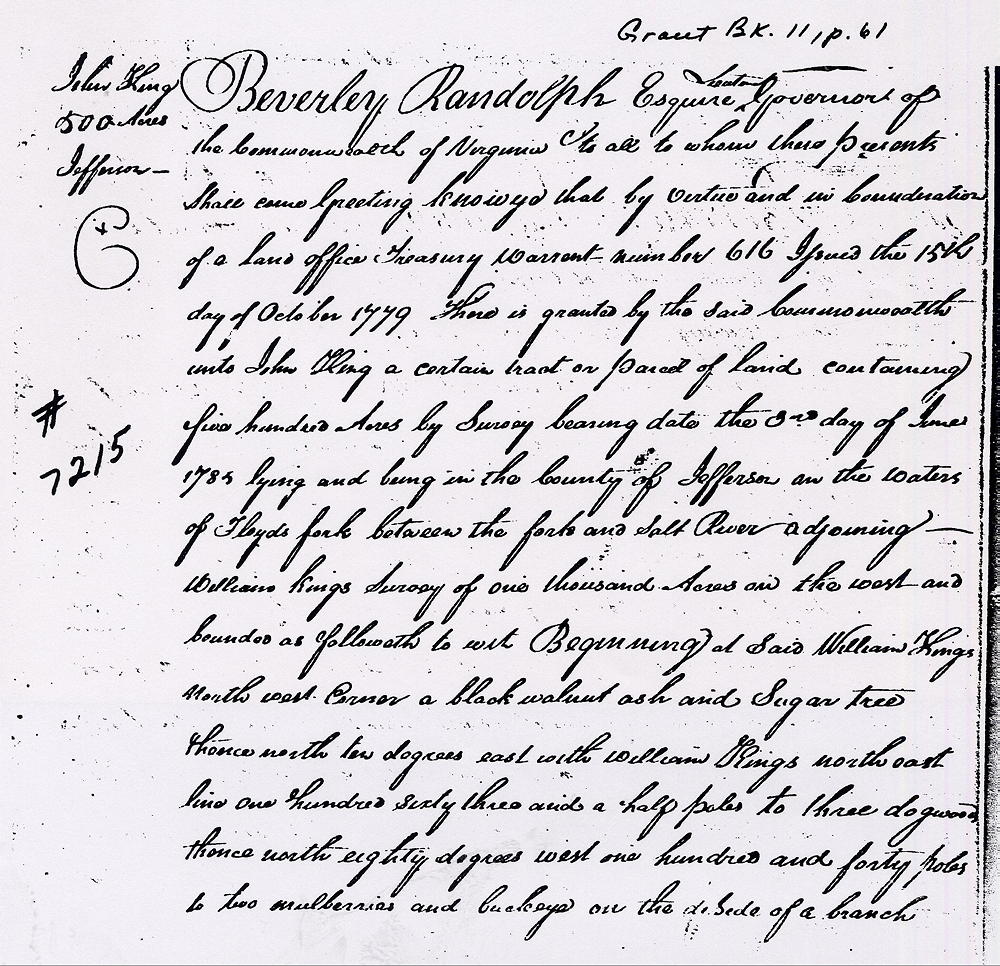 Grant Bk. 11, p. 61
John King
500 Acres
Jefferson —
Ex
# 7215
Beverley Randolph Esquire Lieuten Governor of
the Commonwealth of Virginia &c to all to whom these presents
Shall come Greeting know ye that by Virtue and in Consideration
of a land office Treasury Warrent number 616 Issued the 15th
day of October 1779 There is granted by the said Commonwealth
unto John King a certain tract or parcel of land containing
five hundred Acres by Survey bearing date the 3rd day of June
1785 lying and being in the County of Jefferson on the waters
of Floyds fork between the fork and Salt River adjoining —
William Kings Survey of one thousand Acres on the west and
bounded as followeth to wit Beginning at Said William Kings
North west Corner a black walnut ash and Sugar tree
thence north ten degrees east with William Kings north east
line one hundred sixty three and a half poles to three dogwoods
thence north eighty degrees west one hundred and forty poles
to two mulberries and buckeye on the side of a branch